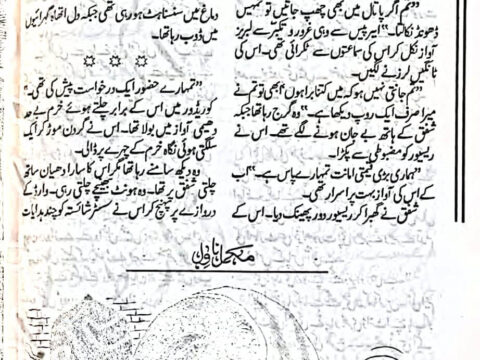 "تم اگر پاتال میں بھی چھپ جاتیں تو تمہیں
ڈھونڈ نکالتا۔" ایئر پیس سے وہی غرور و تکبر سے لبریز
آواز نکل کر اس کی سماعتوں سے ٹکرائی تھی۔ اس کی
ٹانگیں لرزنے لگیں۔
"تم جانتی نہیں ہو کہ میں کتنا برا ہوں' ابھی تو تم نے
میرا صرف ایک روپ دیکھا ہے۔" وہ گرج رہا تھا جبکہ
شفق کے ہاتھ بے جان ہونے لگے تھے۔ اس نے
ریسیور کو مضبوطی سے پکڑا۔
"ہماری بڑی قیمتی امانت تمہارے پاس ہے۔" اب
کے اس کی آواز بہت پر اسرار تھی۔
شفق نے گھبرا کر ریسیور دور پھینک دیا۔ اس کے
دماغ میں سنسناہٹ ہو رہی تھی جبکہ دل اتھاہ گہرائیوں
میں ڈوب رہا تھا۔
☆ ☆ ☆
"تمہارے حضور ایک درخواست پیش کی تھی۔"
کوریڈور میں اس کے برابر چلتے ہوئے خرم بے حد
دھیمی آواز میں بولا تھا۔ اس نے گردن موڑ کر ایک
سلگتی ہوئی نگاہ خرم کے چہرے پر ڈالی۔
وہ دیکھ سامنے رہا تھا مگر اس کا سارا دھیان ساتھ
چلتی شفق پر تھا۔ وہ ہونٹ بھینچے چلتی رہی۔ وارڈ کے
دروازے پر پہنچ کر اس نے سسٹر شائستہ کو چند ہدایات
مکمل ناول